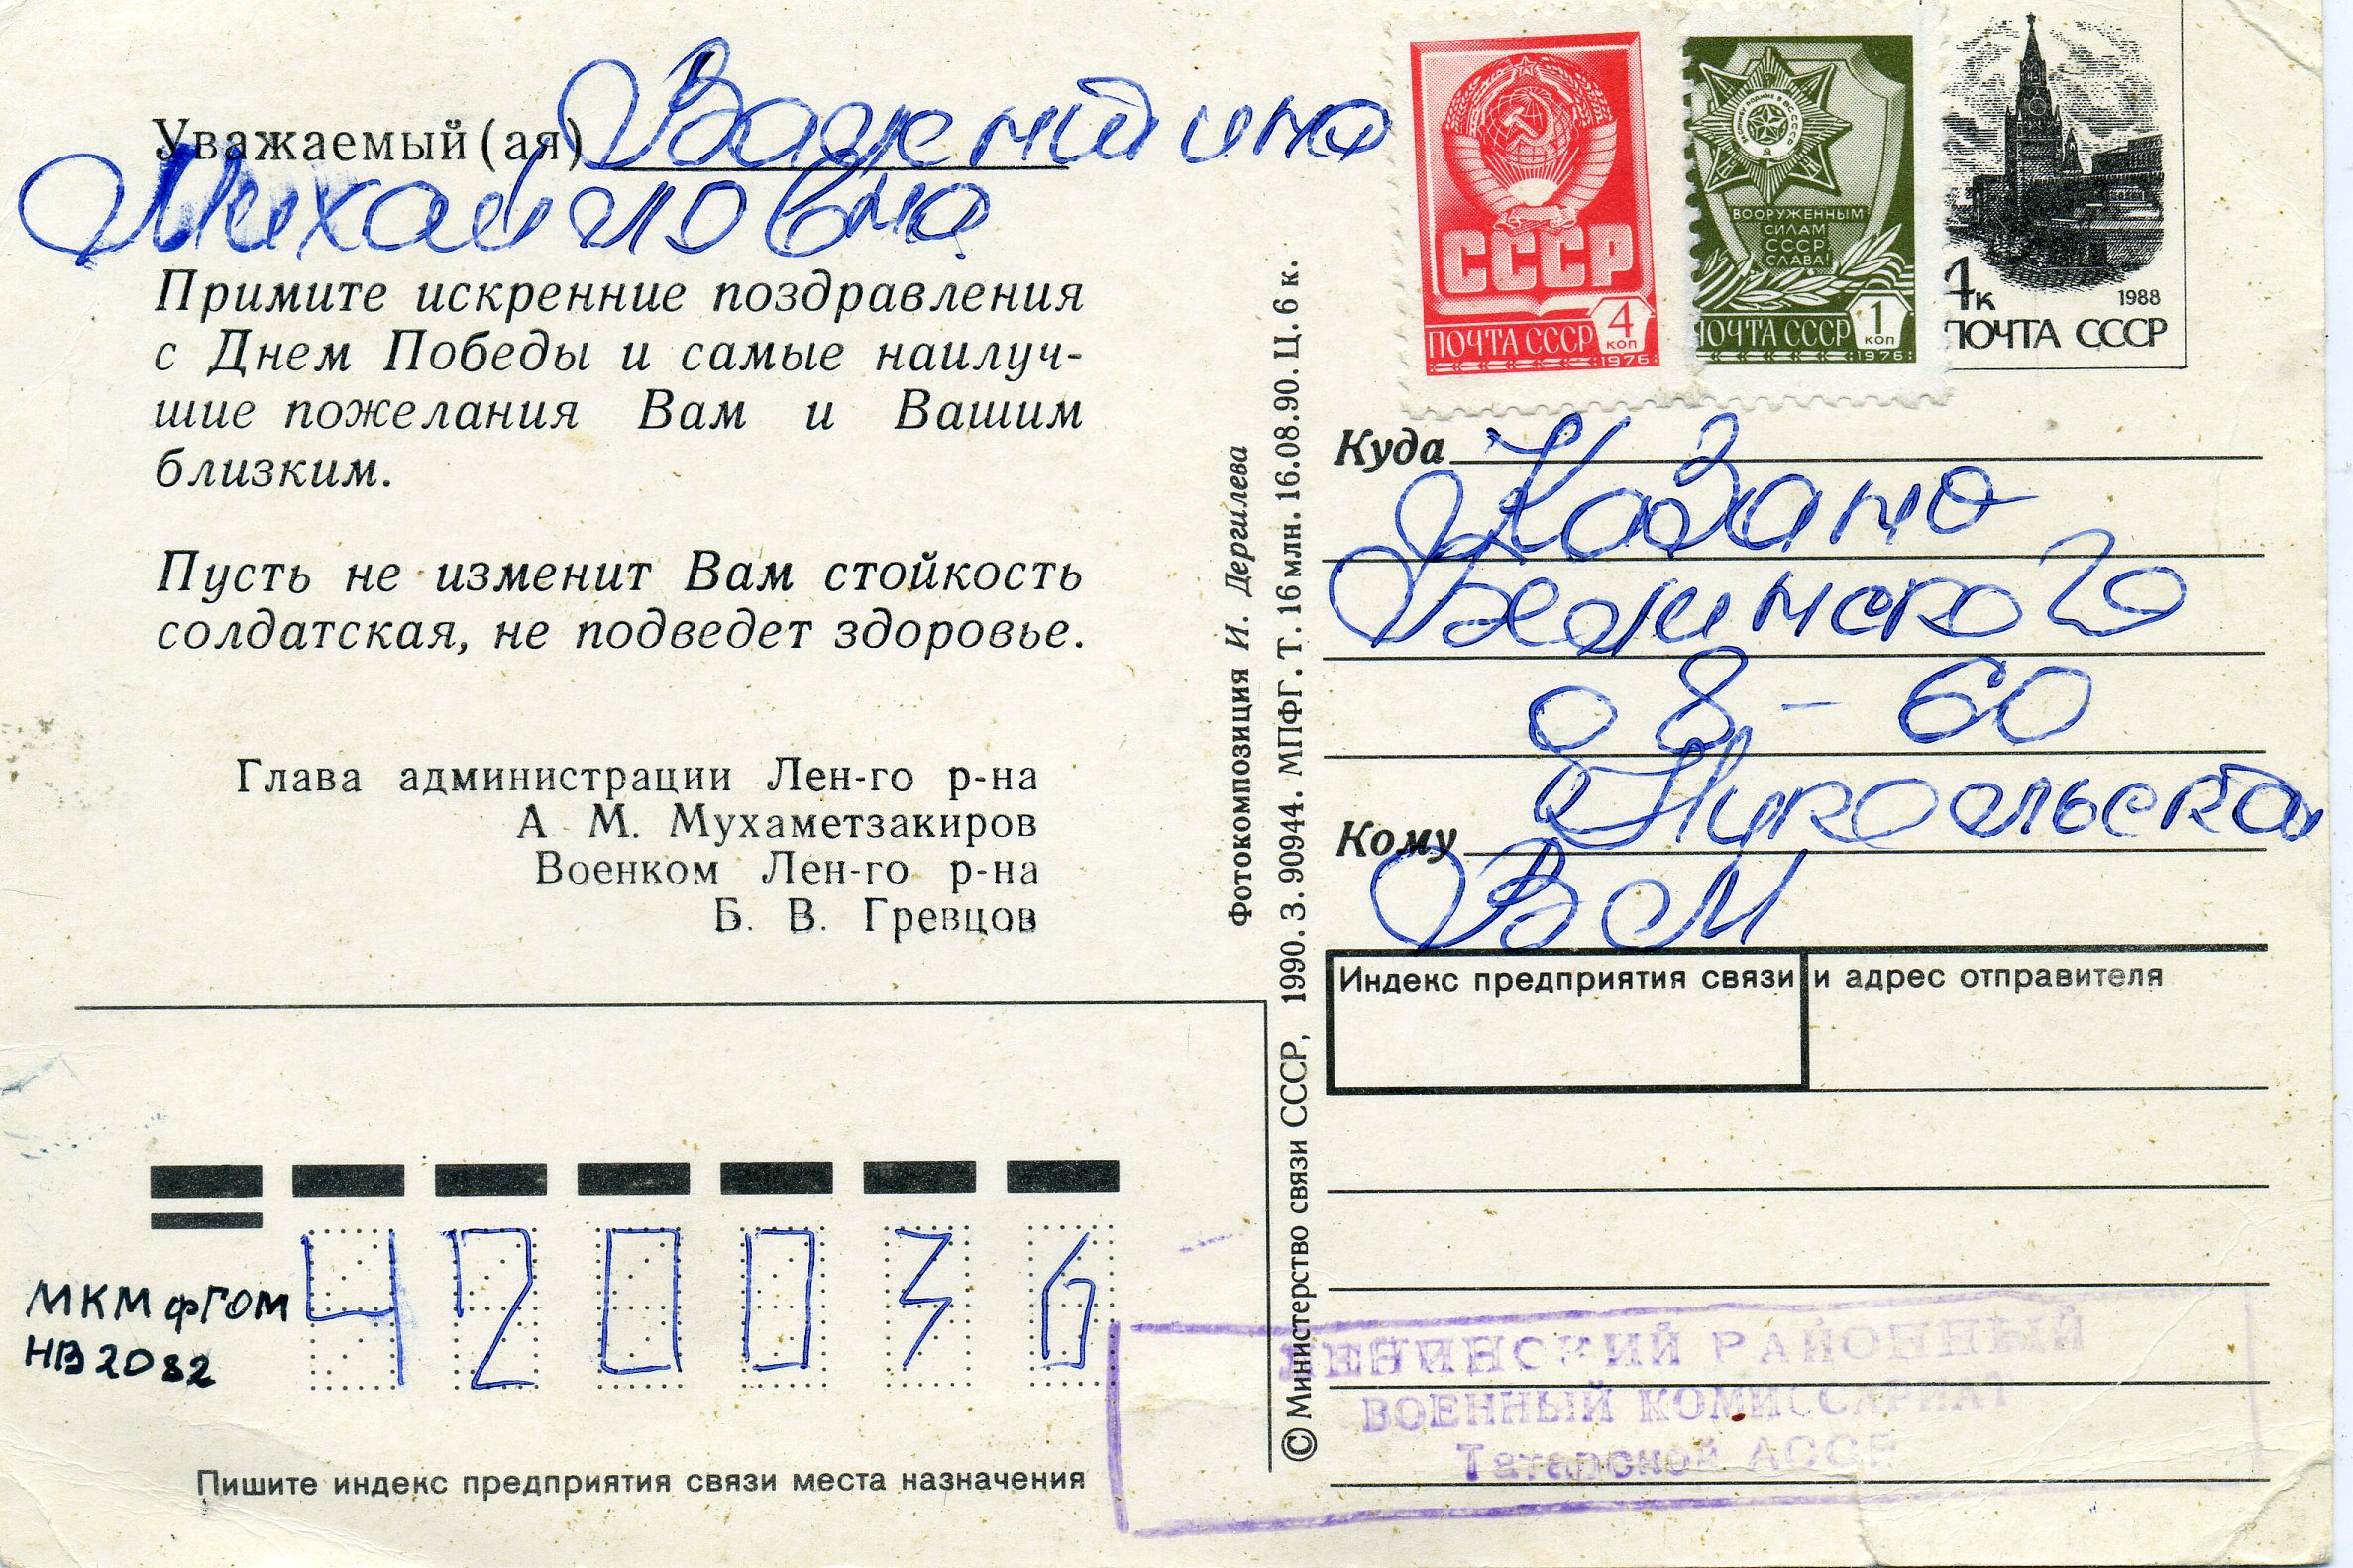 Уважаемый(ая) Валентина
Михайловна
Примите искренние поздравления
с Днем Победы и самые наилуч-
шие пожелания Вам и Вашим
близким.
Пусть не изменит Вам стойкость
солдатская, не подведет здоровье.
Глава администрации Лен-го р-на
А М. Мухаметзакиров
Военком Лен-го р-на
Б. В. Гревцов
420036
МКМфГОМ
НВ2082
Пишите индекс предприятия связи места назначения
Фотокомпозиция И. Дергилева
© Министерство связи СССР, 1990. З. 90944. МПФГ. Т. 16 млн. 16.08.90. Ц. 6 к.
СССР
ПОЧТА СССР 4 коп
1976
ВООРУЖЕННЫМ
СИЛАМ
СССР
СЛАВА!
ПОЧТА СССР 1 коп
1976
1988
ПОЧТА СССР
Куда Казань
Белинского
8-60
Кому
В М
Индекс предприятия связи и адрес отправителя
ЛЕНИНСКИЙ РАЙОННЫЙ
ВОЕННЫЙ КОМИССАРИАТ
Татарской АССР